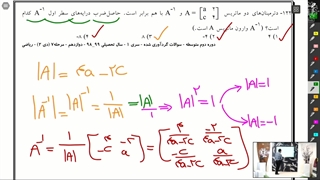 ۱۲۲- دترمینان‌های دو ماتریس A = [a ۲; c ۴] و A⁻¹ با هم برابر است. حاصل‌ضرب درایه‌های سطر اول A⁻¹ کدام
است؟ (A⁻¹ وارون ماتریس A است.)
۱) ۲ ۲) ۲- ۳) ۸ ۴) ۸-
دوره دوم متوسطه - سوالات گردآوری شده - سری ۱ - سال تحصیلی ۹۹_۹۸ - دوازدهم - مرحله ۷ (دی ۲) - ریاضی
|A| = ۴a - ۲c
|A⁻¹| = |A|⁻¹ = 1/|A| = |A|/1 ⇒ |A|² = 1 |A|=1 |A|=-1
A⁻¹ = 1/|A| [۴ -۲; -c a] = [۴/(۴a-۲c) -۲/(۴a-۲c); -c/(۴a-۲c) a/(۴a-۲c)]